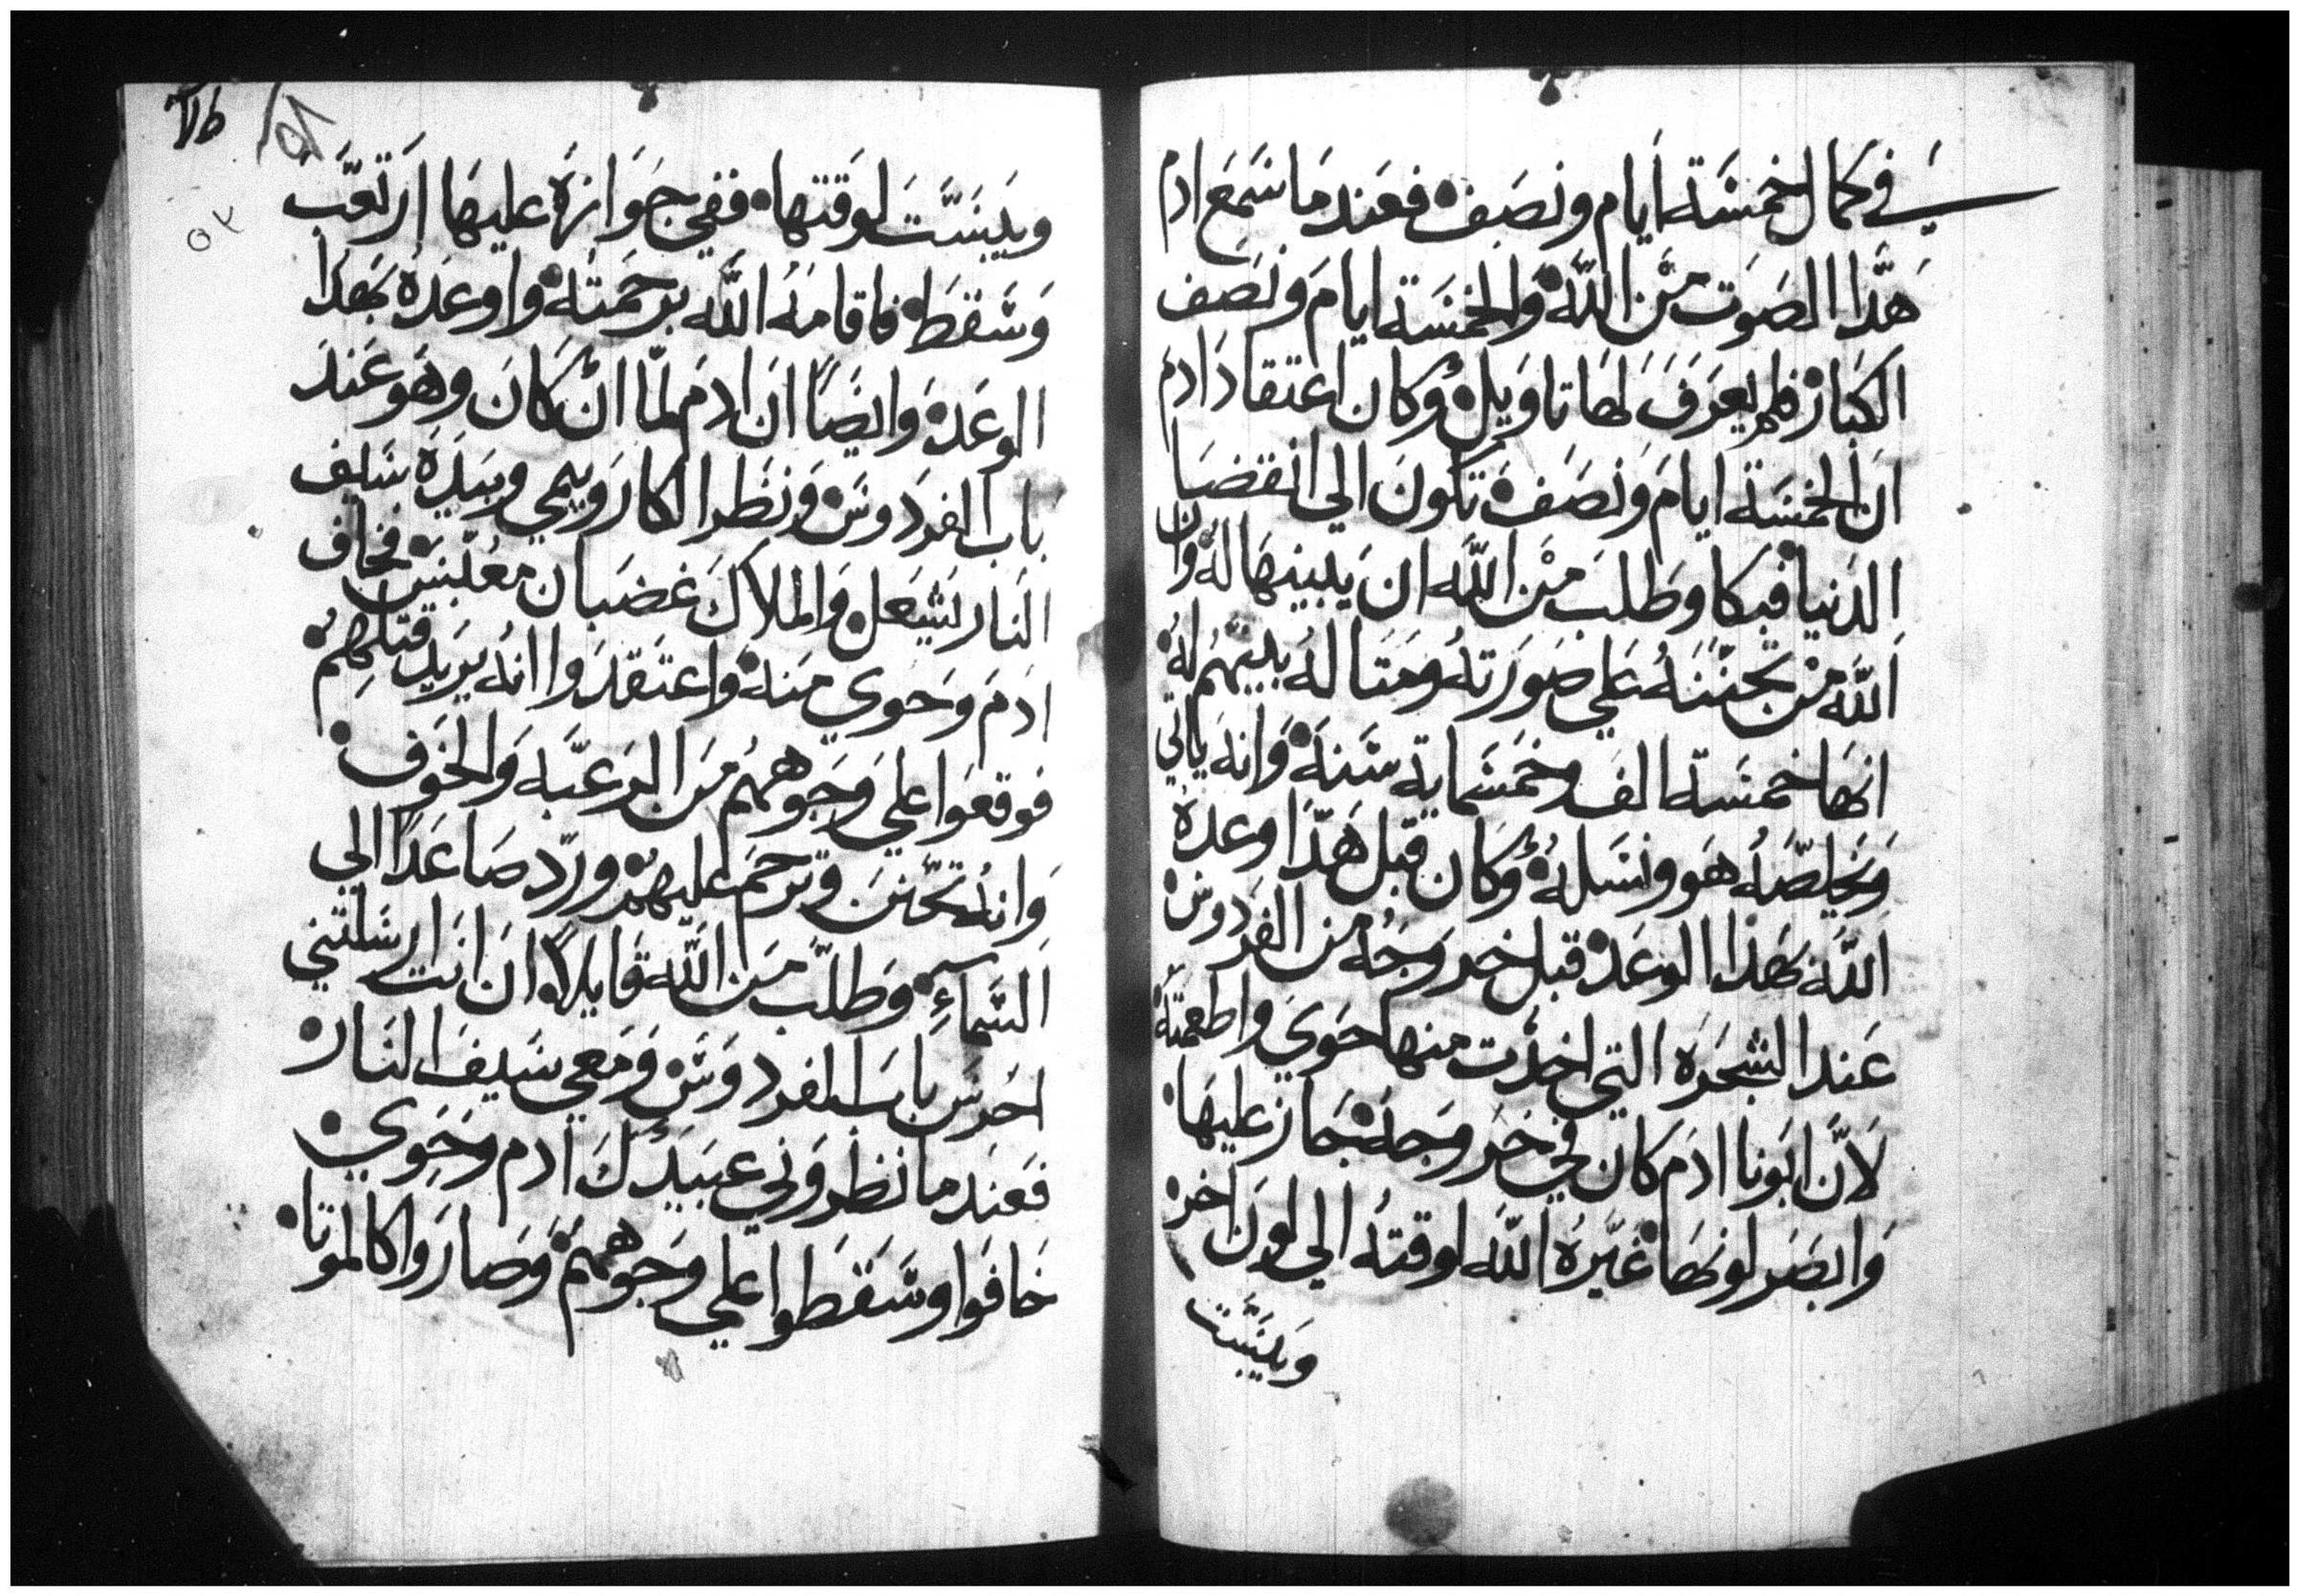 في كمال خمسَة أيام ونصَف فعَند مَا سَمَع ادم
هَذا الصَوت مَن اللَّه والخمسَة ايامَ ونصَف
الكبَار فلم يعَرَف لهَا تاوَيل وكان اعتقادَ ادم
انَ الخمسَة ايامَ ونصَفَ تكونَ الي انقضَا
الدَنيا فبكا وطَلبَ مَن اللَّه انَ يبينهَا له وان
اللَّه مَن تحننهُ عَلي صَورَته ومَثاله بينهُم له
انهَا خمسَة الفَ وخمَسماية سَنة وَانه ياتي
وَيخلصَهُ هَو ونسَله وكان قبل هَذا اوعدهَ
اللَّه بهَذا الوعَد قبل خروَجُه من الفردَوس
عَند الشجرَة التي اخدَت منها حوَي واطعمته
لاَنَ ابَونا ادَم كان في خرَوجَه جَاز عليهَا
وَابصَر لونهَا غيَّرهُ اللَّه لوقتهُ الي لونَ اخر
ويَبسَت
ويَبسَت لوقتها ففي جَوَازهَ عليهَا ارتعَب
وسَقطَ فاقامَهُ اللَّه برَحمَته واوعَدهُ بهَدا
الوعَد وايضًا انَ ادمَ لما انَ كانَ وهَو عَند
باب الفردَوسَ ونظَر الكارَوبيمي وبيَدهَ سَيف
النَار يشَعل وَالملاكَ غضَبان معَبسَ فخاف
ادَمَ وحَوي مَنه واعتقدَوا انه يرَيد قتلهِمُ
فوقعَوا علي وجَوههمُ مَن الرَعبَه وَالخوَف
وَانهُ تحَننَ وترحَم عليهمَ وردّ صَاعَدًا الي
السَماءِ وطَلبَ مَن اللَّه قايلاً انَ انَت ارسَلتني
احرَسَ بابَ الفردوَسَ ومَعي سَيفَ النَار
فعَند ما نظروَني عَبيَدكَ ادم وحَوي
خافَوا وسَقطَوا علي وجَوههمُ وصَارَوا كالموَتا